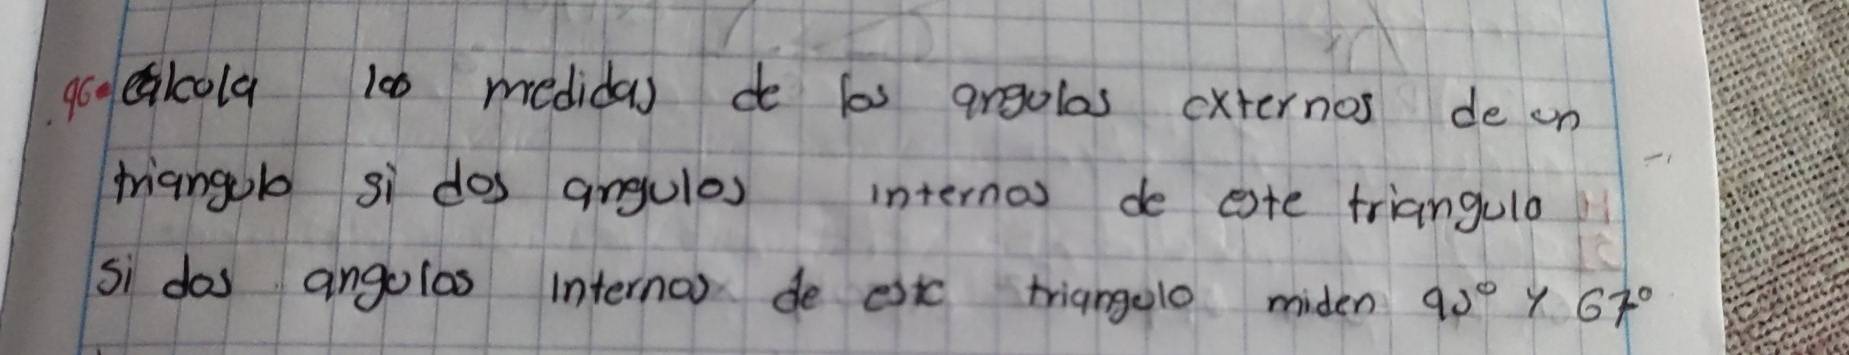 96- calcula los medidas de los angulos externos de un
triangulo si dos angulos internos de este triangulo
si dos angulos internos de este triangulo miden 90° y 67°